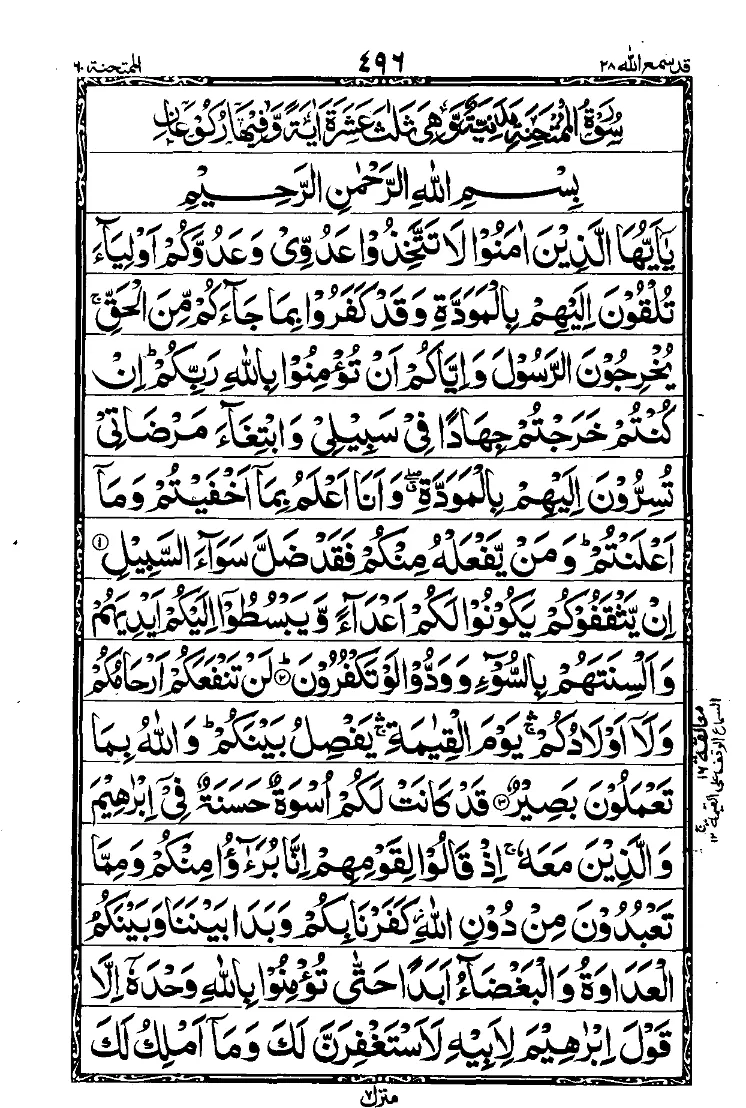 قد سمع الله ٢٨
٤٩٦
الممتحنة ٦٠
سُوْرَةُ الْمُمْتَحِنَةِ مَدَنِيَّةٌ وَّهِيَ ثَلٰثَ عَشَرَةَ اٰيَةً وَّفِيْهَا رُكُوْعَانِ
بِسْمِ اللهِ الرَّحْمٰنِ الرَّحِيْمِ
يٰۤاَيُّهَا الَّذِيْنَ اٰمَنُوْا لَا تَتَّخِذُوْا عَدُوِّيْ وَعَدُوَّكُمْ اَوْلِيَآءَ
تُلْقُوْنَ اِلَيْهِمْ بِالْمَوَدَّةِ وَقَدْ كَفَرُوْا بِمَا جَآءَكُمْ مِّنَ الْحَقِّ ۚ
يُخْرِجُوْنَ الرَّسُوْلَ وَاِيَّاكُمْ اَنْ تُؤْمِنُوْا بِاللهِ رَبِّكُمْ ؕ اِنْ
كُنْتُمْ خَرَجْتُمْ جِهَادًا فِيْ سَبِيْلِيْ وَابْتِغَآءَ مَرْضَاتِيْ
تُسِرُّوْنَ اِلَيْهِمْ بِالْمَوَدَّةِ ۖ وَاَنَا اَعْلَمُ بِمَاۤ اَخْفَيْتُمْ وَمَاۤ
اَعْلَنْتُمْ ؕ وَمَنْ يَّفْعَلْهُ مِنْكُمْ فَقَدْ ضَلَّ سَوَآءَ السَّبِيْلِ ①
اِنْ يَّثْقَفُوْكُمْ يَكُوْنُوْا لَكُمْ اَعْدَآءً وَّيَبْسُطُوْۤا اِلَيْكُمْ اَيْدِيَهُمْ
وَاَلْسِنَتَهُمْ بِالسُّوْٓءِ وَوَدُّوْا لَوْ تَكْفُرُوْنَ ؕ② لَنْ تَنْفَعَكُمْ اَرْحَامُكُمْ
وَلَاۤ اَوْلَادُكُمْ ۛۚ يَوْمَ الْقِيٰمَةِ ۛۚ يَفْصِلُ بَيْنَكُمْ ؕ وَاللهُ بِمَا
تَعْمَلُوْنَ بَصِيْرٌ ③ قَدْ كَانَتْ لَكُمْ اُسْوَةٌ حَسَنَةٌ فِيْۤ اِبْرٰهِيْمَ
وَالَّذِيْنَ مَعَهٗ ۚ اِذْ قَالُوْا لِقَوْمِهِمْ اِنَّا بُرَءٰٓؤُا مِنْكُمْ وَمِمَّا
تَعْبُدُوْنَ مِنْ دُوْنِ اللهِ ؗ كَفَرْنَا بِكُمْ وَبَدَا بَيْنَنَا وَبَيْنَكُمُ
الْعَدَاوَةُ وَالْبَغْضَآءُ اَبَدًا حَتّٰى تُؤْمِنُوْا بِاللهِ وَحْدَهٗۤ اِلَّا
قَوْلَ اِبْرٰهِيْمَ لِاَبِيْهِ لَاَسْتَغْفِرَنَّ لَكَ وَمَاۤ اَمْلِكُ لَكَ
معانقة ١٦
منزل ٧